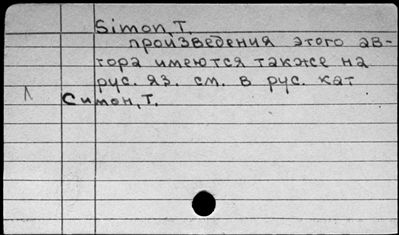 Simon, T.
произведения этого ав-
тора имеются также на
рус. яз. см. в рус. кат
Симон, Т.